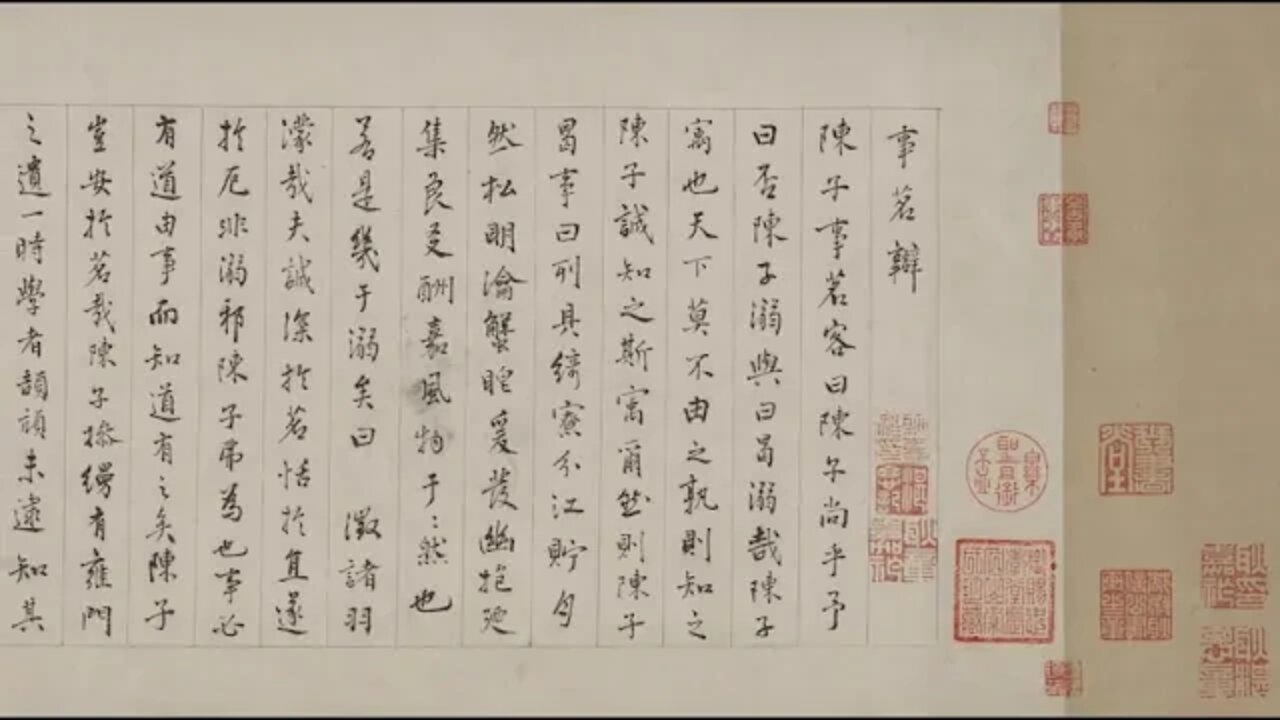 事茗辯
陳子事茗客曰陳子尚乎予
曰否陳子溺與曰曷溺哉陳子
寓也天下莫不由之孰則知之
陳子誠知之斯寓爾然則陳子
曷事曰刑具綺寮分江貯月
然松眀瀹蟹眼爰茇幽抱迺
集良友酬嘉風物于〻然也
若是幾于溺矣曰 澂諸羽
濛哉夫誠深於茗恬於宜遂
於厄非溺邪陳子弗為也事必
有道由事而知道有之矣陳子
豈安於茗哉陳子操縵有雍門
之遺一時學者頡頏未逮知其